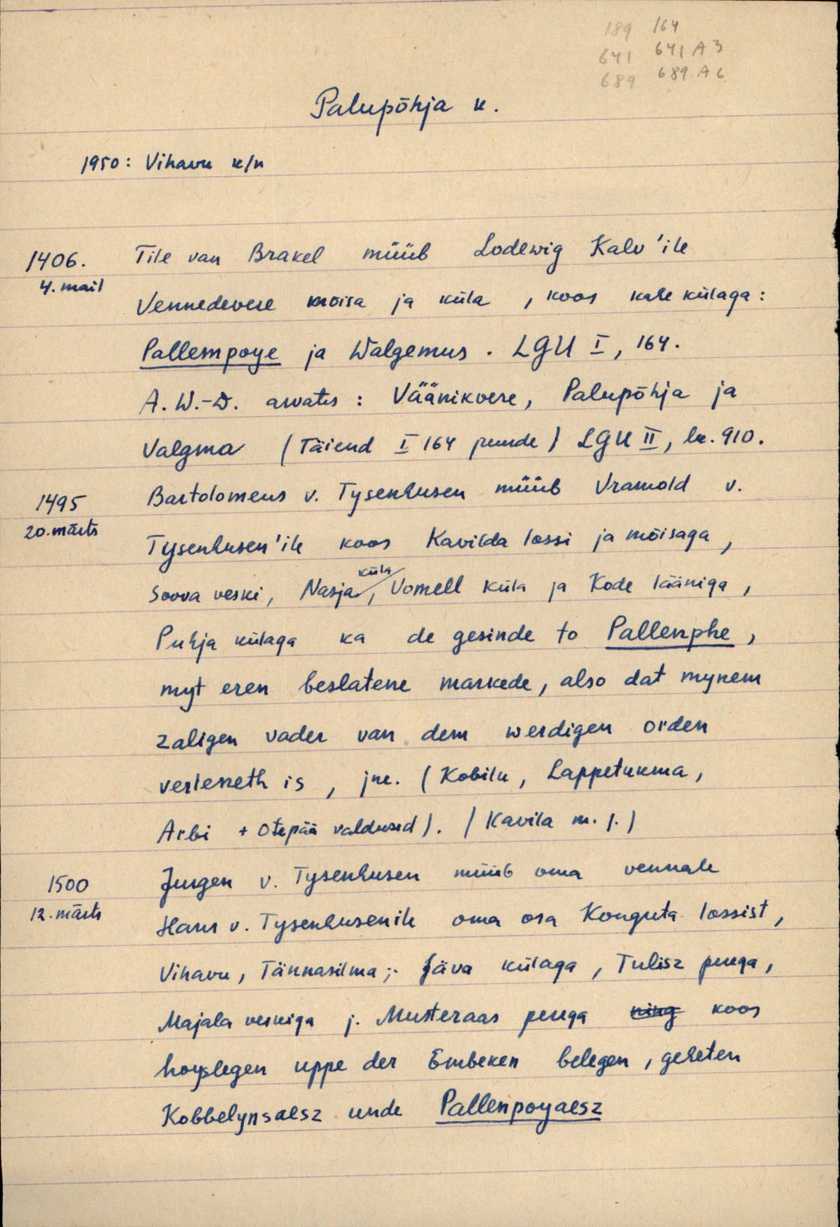 189 164
641 641 A 3
689 689 A 6
Palupõhja k.
1950: Vihavu k/n
1406. Tile van Brakel müüb Lodewig Kalv'ile
4. mail Vennedevere mõisa ja küla, koos kahe külaga:
Pallempoye ja Walgemus. LGU I, 164.
A. W.-D. arvates: Väänikvere, Palupõhja ja
Valgma (Täiend I 164 juurde) LGU II, lk. 910.
1495 Bartolomeus v. Tysenhusen müüb Vramold v.
20. märts Tysenhusen'ile koos Kavilda lossi ja mõisaga,
küla
Soova veski, Nasja, Vomell küla ja Kode lääniga,
Puhja külaga ka de gesinde to Pallenphe,
myt eren beslatene markede, also dat mynem
zaligen vader van dem werdigen orden
verleneth is, jne. (Kobilu, Lappetukma,
Arbi + Otepää valdused). (Kavila m. j.)
1500 Jurgen v. Tysenhusen müüb oma vennale
12. märts Hans v. Tysenhusenile oma osa Konguta lossist,
Vihavu, Tännasilma j. Java külaga, Tulisz peuga,
Majala veskiga j. Musteraas peuga ning koos
hoyslegen uppe der Embeken belegen, geheten
Kobbelynsaesz unde Pallenpoyaesz